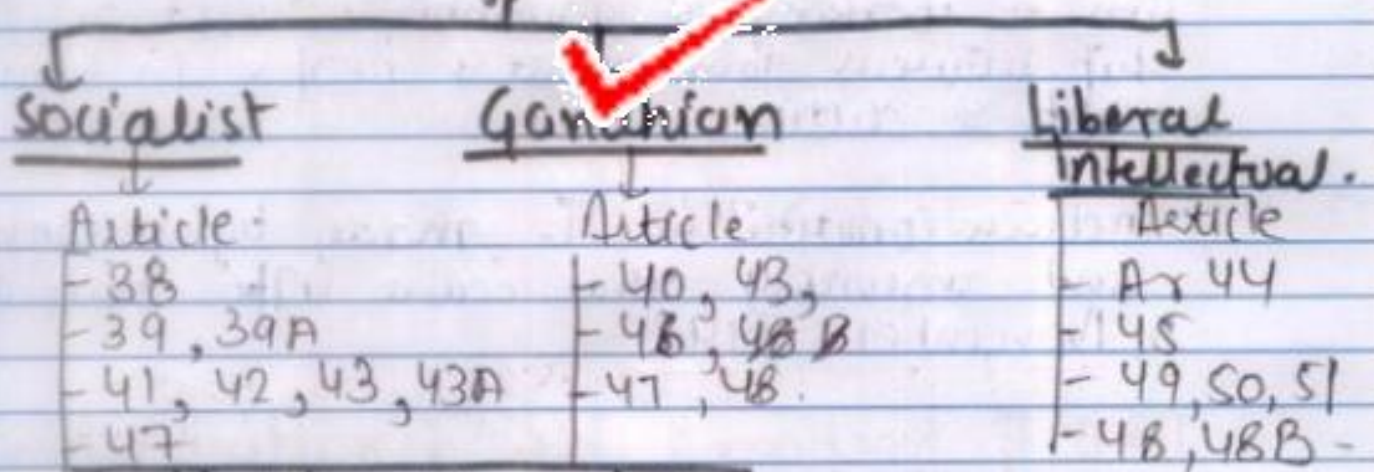 Socialist
Article:
- 38
- 39, 39A
- 41, 42, 43, 43A
- 47
Gandhian
Article
- 40, 43,
- 46,
- 47, 48.
Liberal
Intellectual.
Article
- Ar 44
- 45
- 49, 50, 51
- 48, 48B -